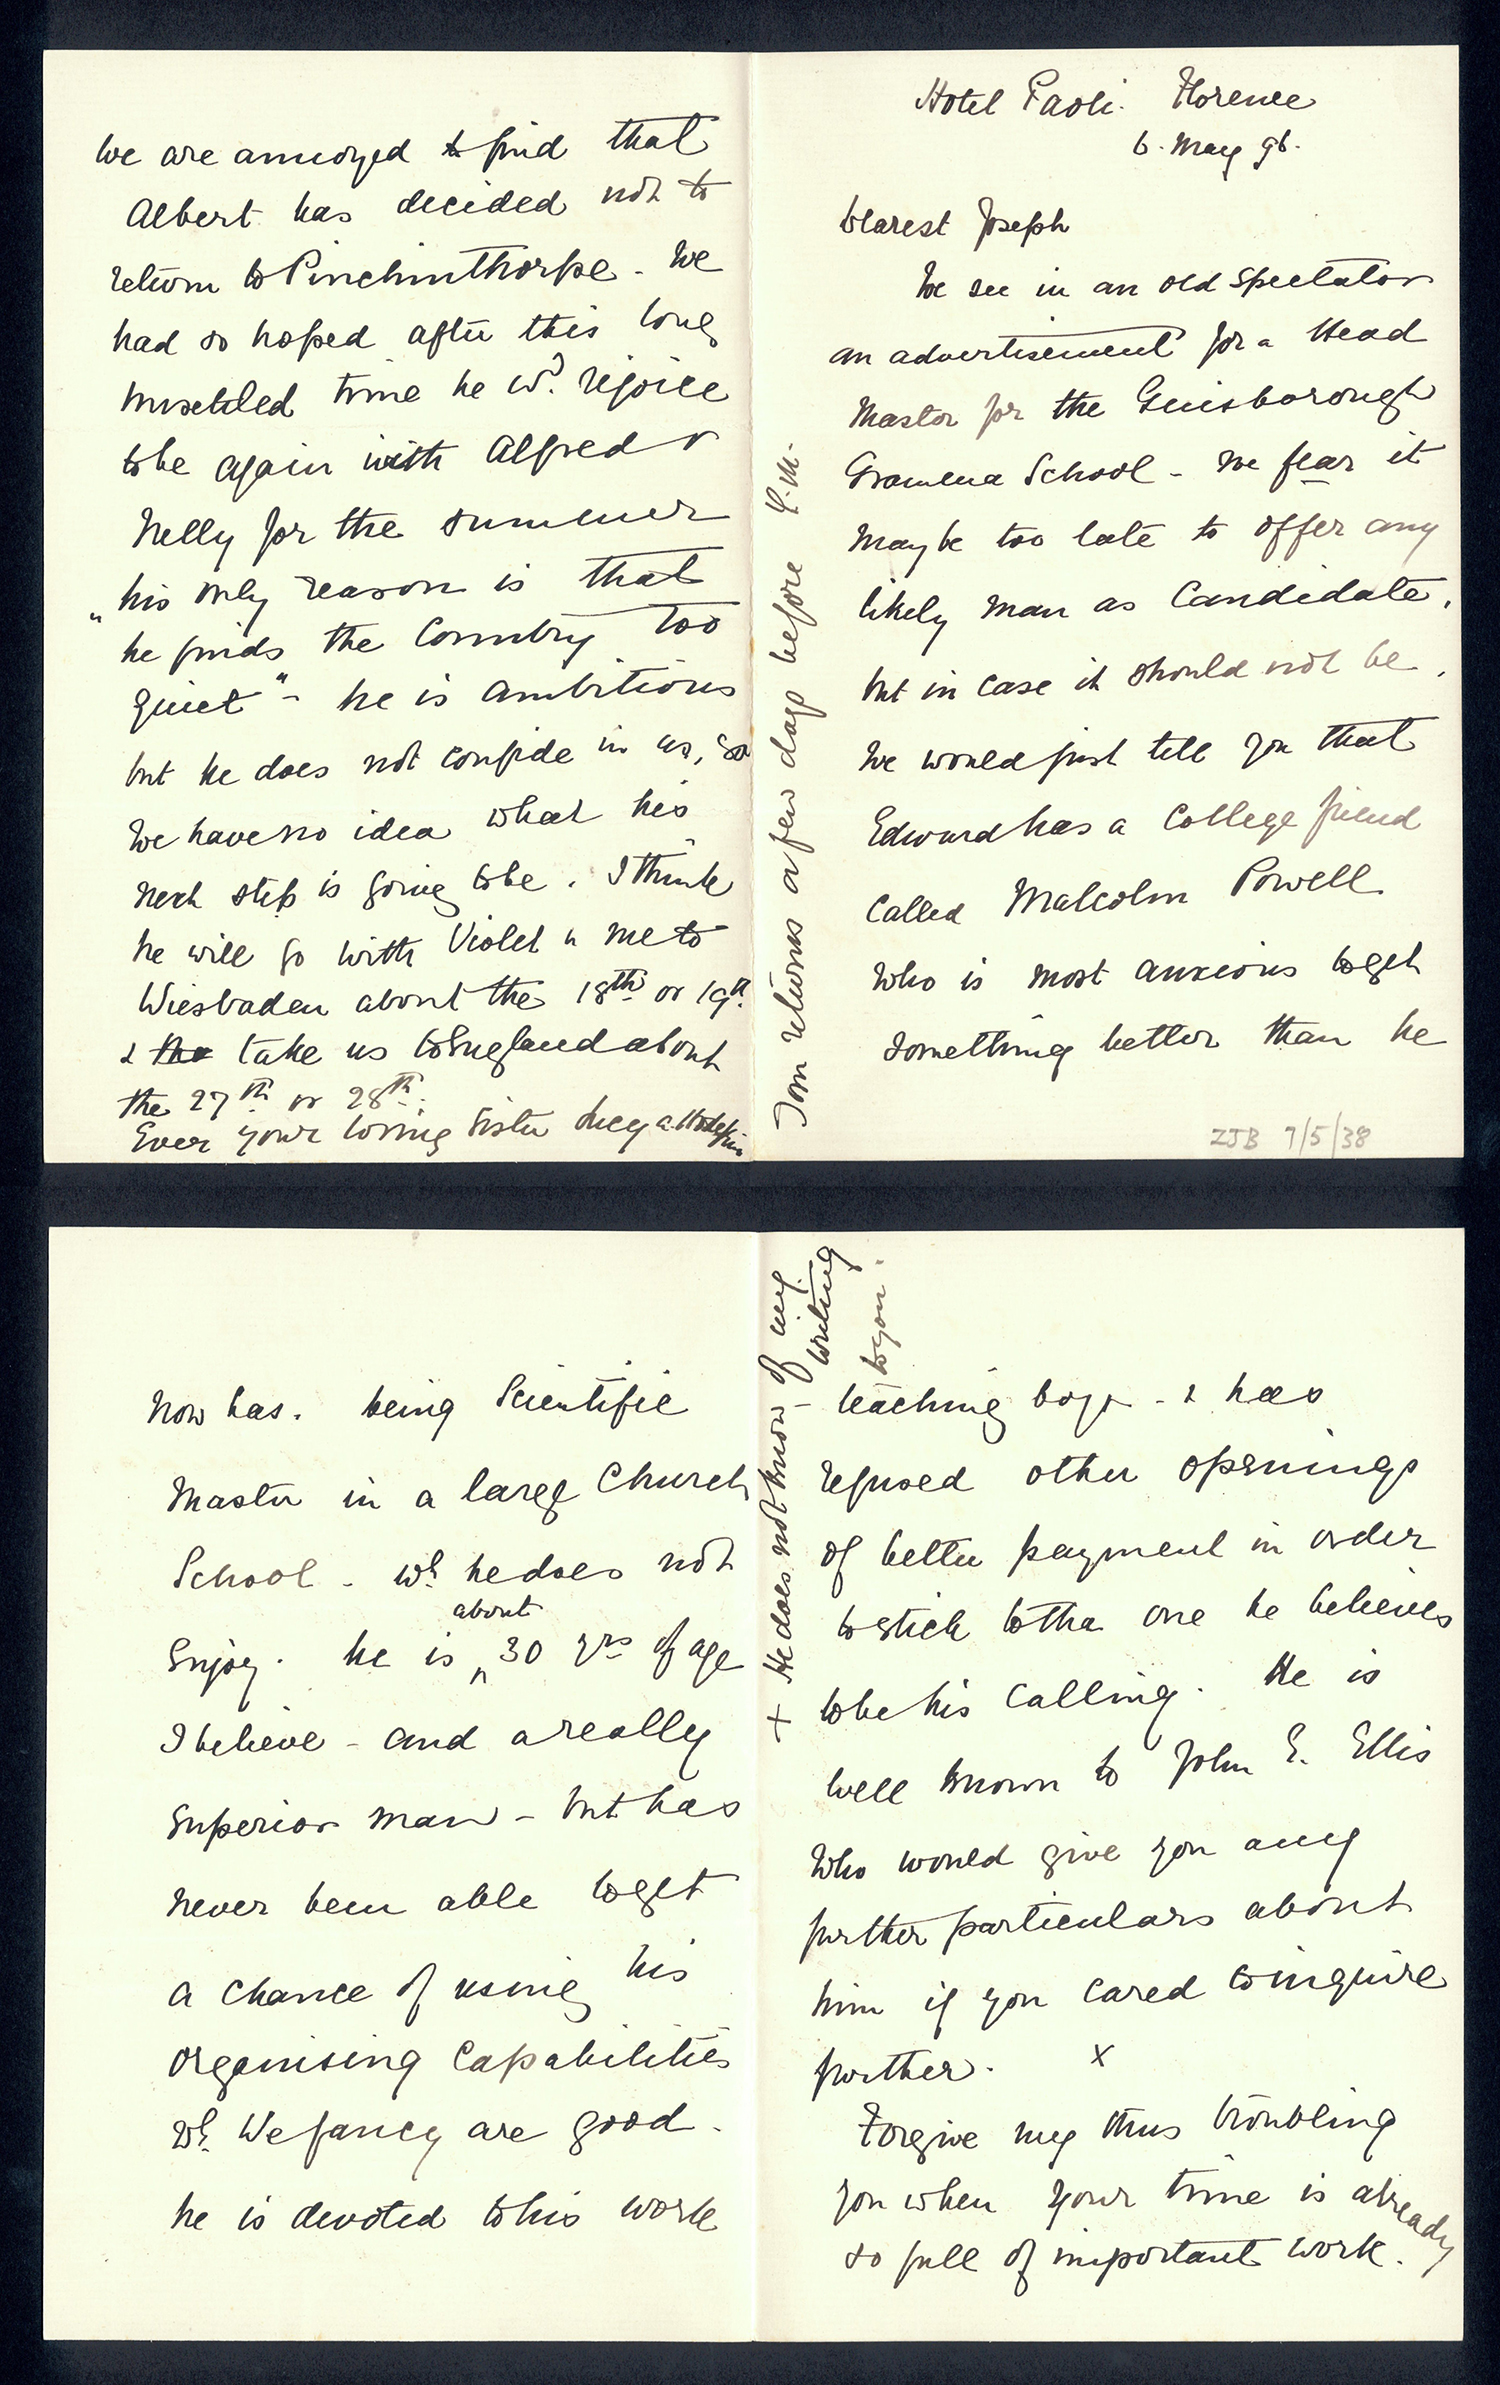 Hotel Paoli. Florence
6. May 96.
Dearest Joseph
We see in an old Spectator
an advertisement for a Head
Master for the Guisborough
School - We fear it
maybe too late to offer any
likely man as Candidate,
but in case it should not be,
we would just tell you that
Edward has a College friend
called Malcolm Powell
who is most anxious to get
something better than he
ZJB 7/5/38
now has. being Scientific
Master in a large Church
School - wh he does not
about
enjoy. he is ^ 30 yrs of age
I believe - and a really
superior man - but has
never been able to get
a chance of using his
organising capabilities
wh. We fancy are good -
he is devoted to his work
- teaching boys - & has
refused other openings
of better payment in order
to stick to the one he believes
to be his calling. He is
well known to John E. Ellis
who would give you any
further particulars about
him if you cared to inquire
further. x
Forgive my thus troubling
you when your time is already
so full of important work.
+ He does not know of my
writing
to you.
We are annoyed to find that
Albert has decided not to
return to Pinchinthorpe - We
had so hoped after this long
unsettled time he wd. rejoice
to be again with Alfred &
Nelly for the summer
"his only reason is that
he finds the Country too
quiet" - he is ambitious
but he does not confide in us, so
we have no idea what his
next step is going to be. I think
he will go with Violet & me to
Wiesbaden about the 18th or 19th
& take us to England about
the 27th or 28th.
Ever your loving sister Lucy A Hodgkin
Tom returns a few days before